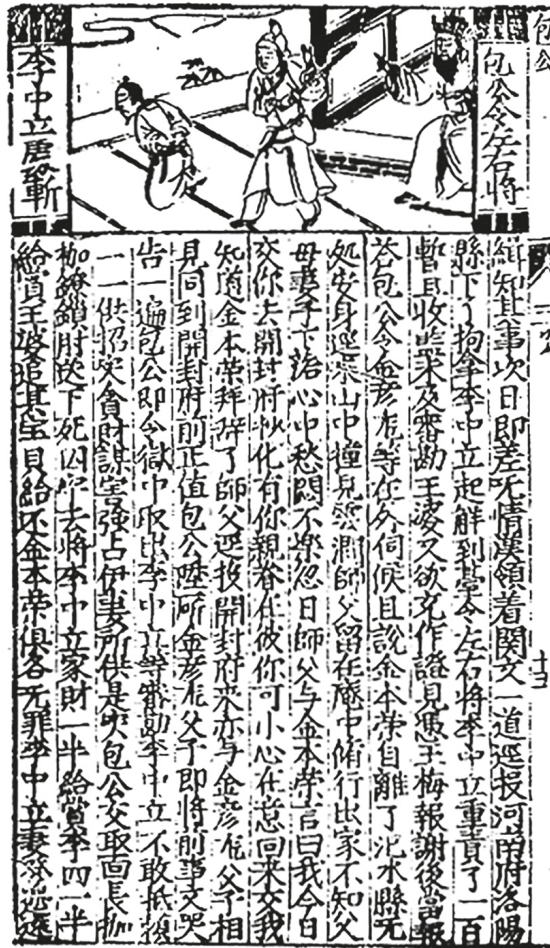 包公
包公令左右將
李中立處斬
緝知其事次日即差旡情漢領着関文一道逕投河南府洛陽
縣下了拘拿李中立起觧到臺令左右將李中立重責了一百
暫且收監未及審勘王婆又欲充作證見憑玉梅報謝後當報
荅包公令金彦龙等在外伺候且說金本荣自離了汜水縣无
処安身逕來山中撞見雲洞師父留在庵中脩行出家不知父
母妻子下落心中愁悶不樂忽日師父与金本荣言曰我今日
交你去開封府抄化有你親眷在彼你可小心在意回來交我
知道金本荣拜辞了師父逕投開封府來亦与金彦龙父子相
見同到開封府前正值包公陞所金彦龙父子即將前事又哭
告一遍包公即令獄中取出李中立等審勘李中立不敢抵頼
一一供招实貪財謀害強占伊妻所供是实包公交取面長枷
枷鐐鎖肘送下死囚牢去將李中立家財一半給賞李四一半
給賞王婆追其宝貝給还金本荣俱各无罪李中立妻發遣邊